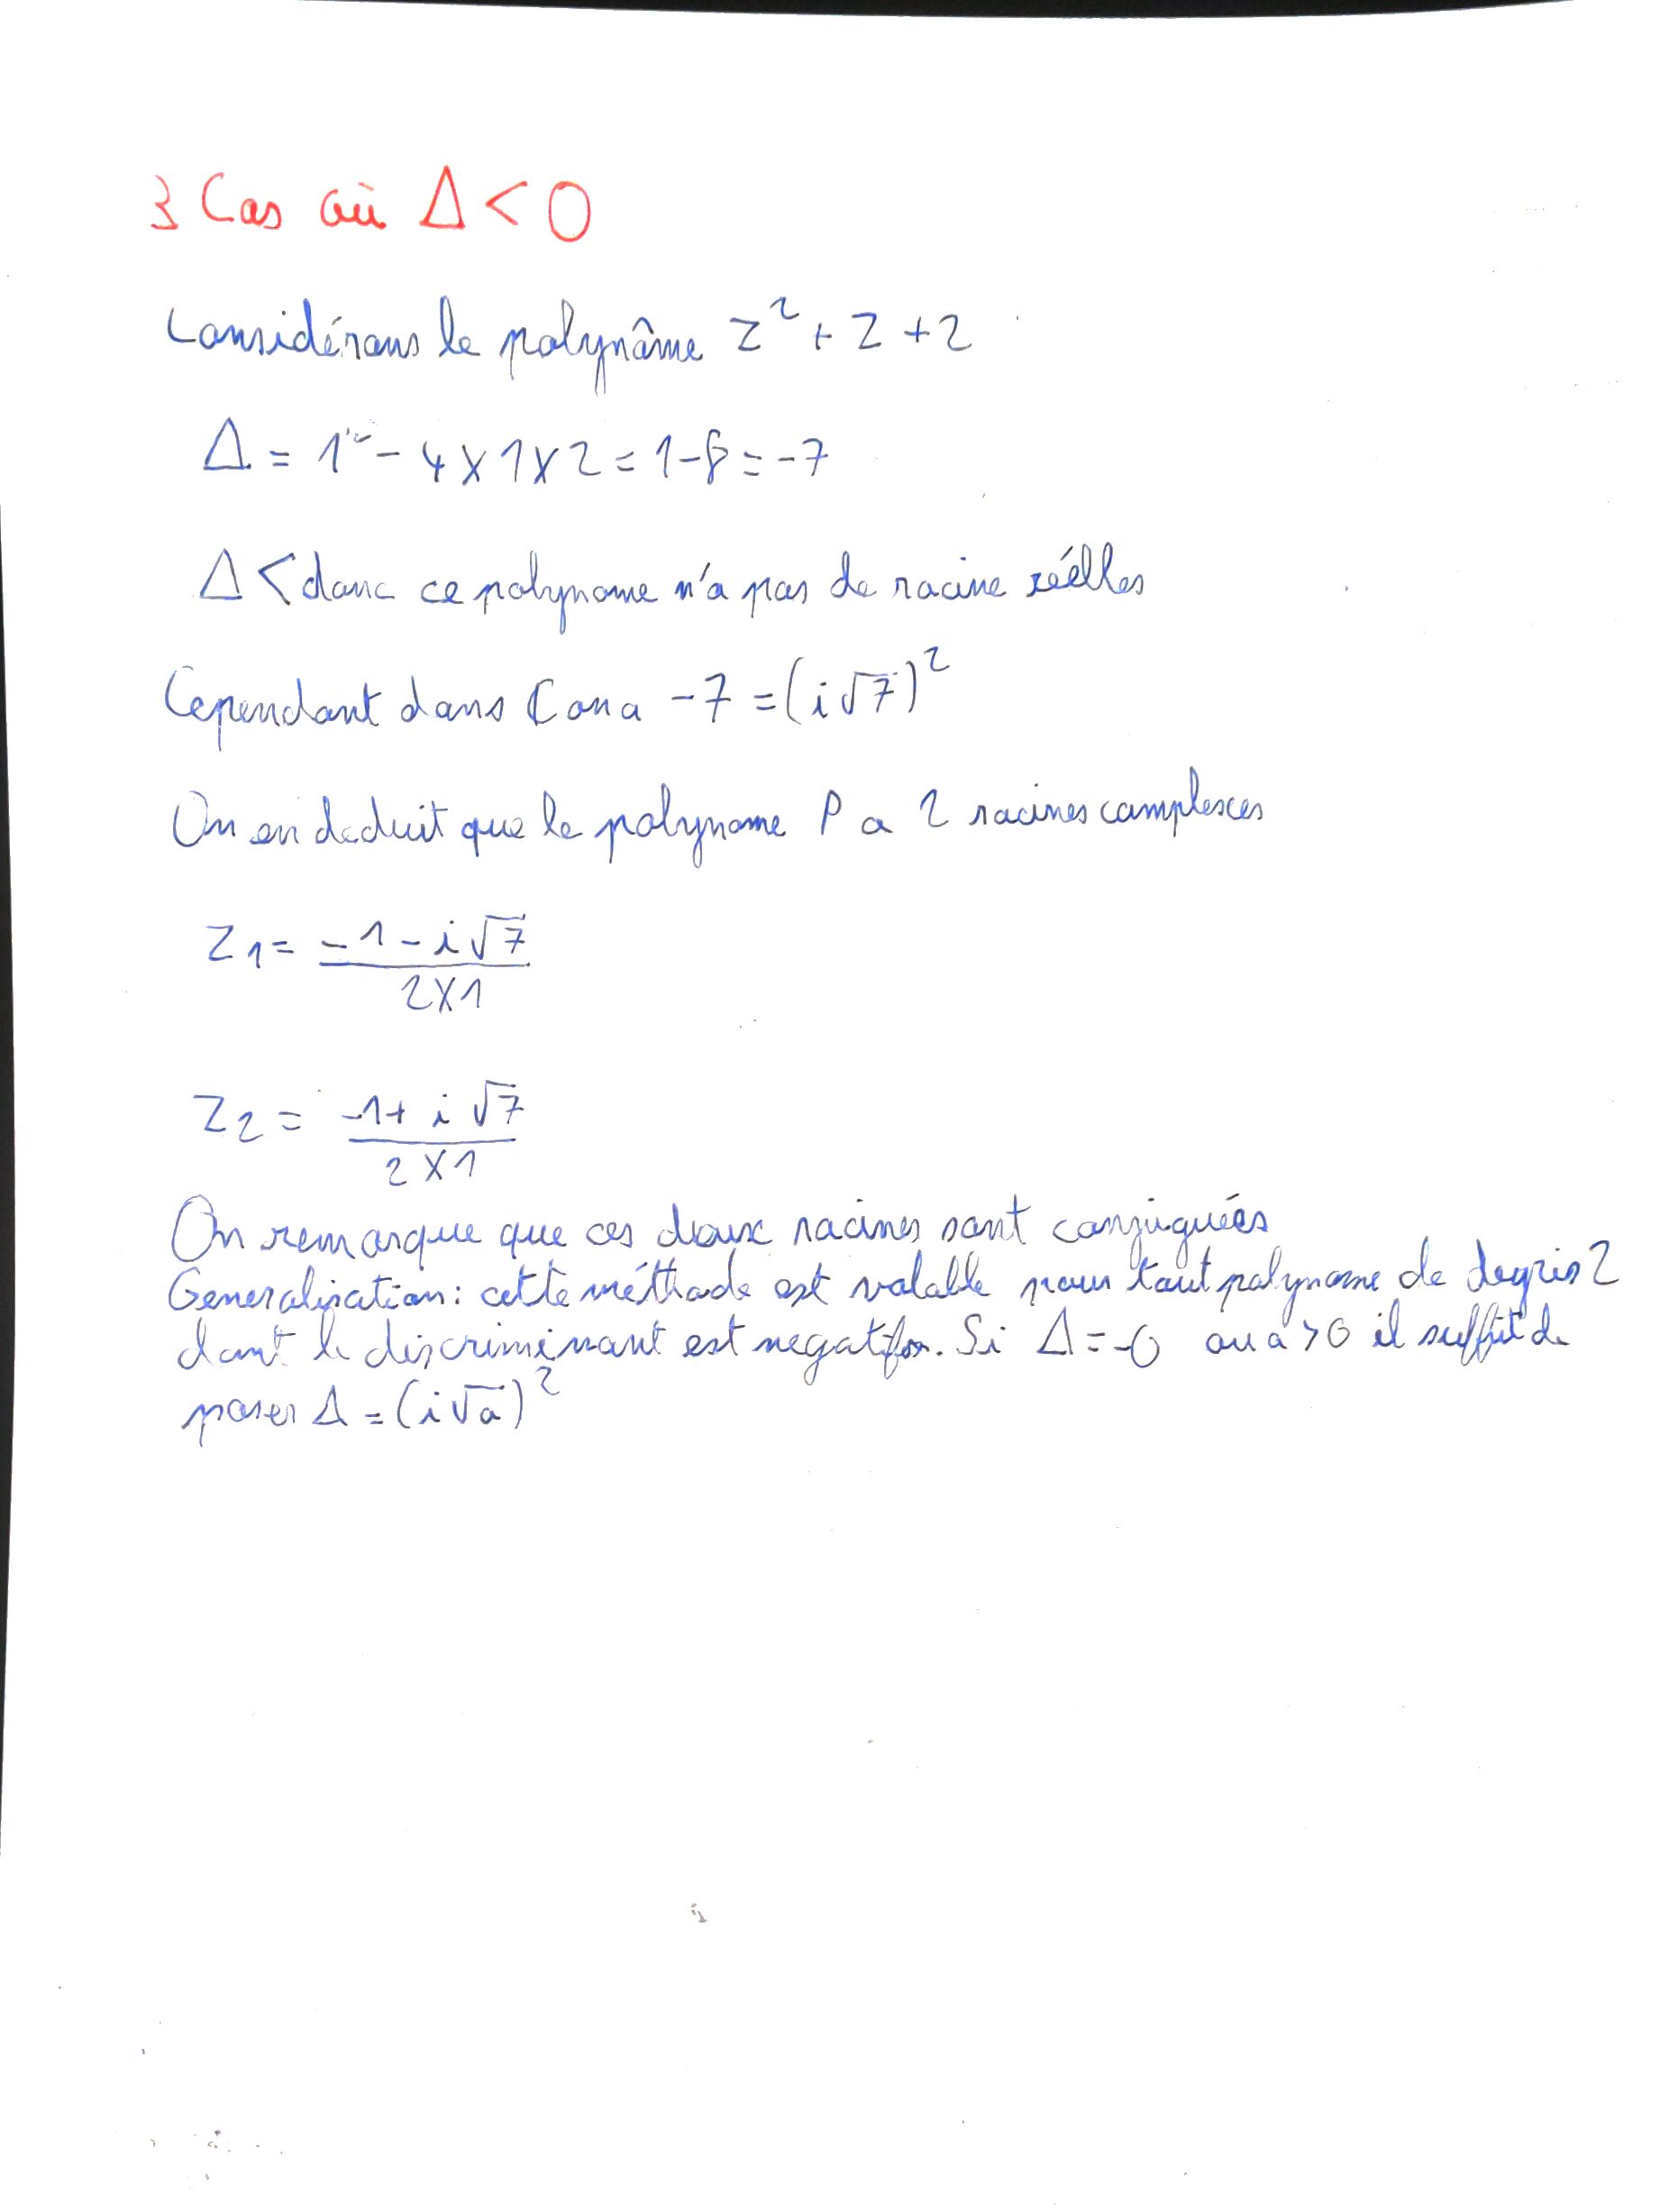 3 Cas où Δ < 0
Considérons le polynôme z² + z + 2
Δ = 1² - 4 x 1 x 2 = 1 - 8 = -7
Δ < donc ce polynome n'a pas de racine réélles
Cependant dans ℂ on a -7 = (i√7)²
On en deduit que le polynome P a 2 racines complexes
z1 = (-1 - i√7) / (2 x 1)
z2 = (-1 + i√7) / (2 x 1)
On remarque que ces deux racines sont conjuguées
Generalisation : cette méthode est valable pour tout polynome de degrés 2
dont le discriminant est negatif. Si Δ = -0 ou a > 0 il suffit de
poser Δ = (i√a)²